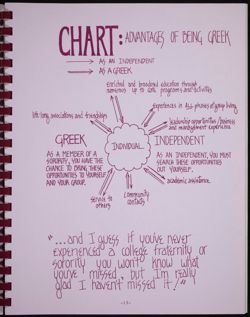 CHART: ADVANTAGES OF BEING GREEK
AS AN INDEPENDENT
AS A GREEK
Enriched and broadened education through
numerous up to date programs and activities
experiences in ALL phases of group living
leadership opportunities / business
and management experience
life long associations and friendships
GREEK
AS A MEMBER OF A
SORORITY, YOU HAVE THE
CHANCE TO BRING THESE
OPPORTUNITIES TO YOURSELF
AND YOUR GROUP.
INDIVIDUAL
INDEPENDENT
AS AN INDEPENDENT, YOU MUST
SEARCH THESE OPPORTUNITIES
OUT YOURSELF.
academic assistance
Community
contacts
service to
others
"...and I guess if you've never
experienced a college fraternity or
sorority you won't know what
you've missed, but I'm really
glad I haven't missed it!"